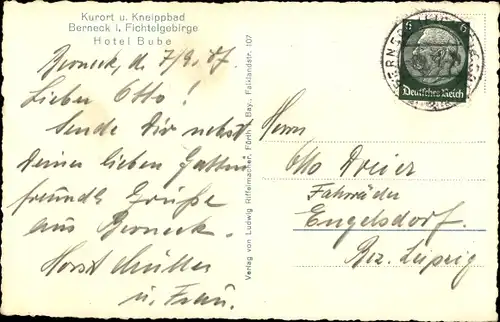 Kurort u. Kneippbad
Berneck i. Fichtelgebirge
Hotel Bube
Berneck, d. 7/9.37
Lieber Otto!
Sende Dir nebst
Deiner lieben Gattin
freundl. Grüße
aus Berneck.
Horst Müller
u. Frau.
Verlag von Ludwig Riffelmacher, Fürth i. Bay., Falklandstr. 107
6
6
Deutsches Reich
Herrn
Otto Dreier
Fahrräder
Engelsdorf.
Bez. Leipzig